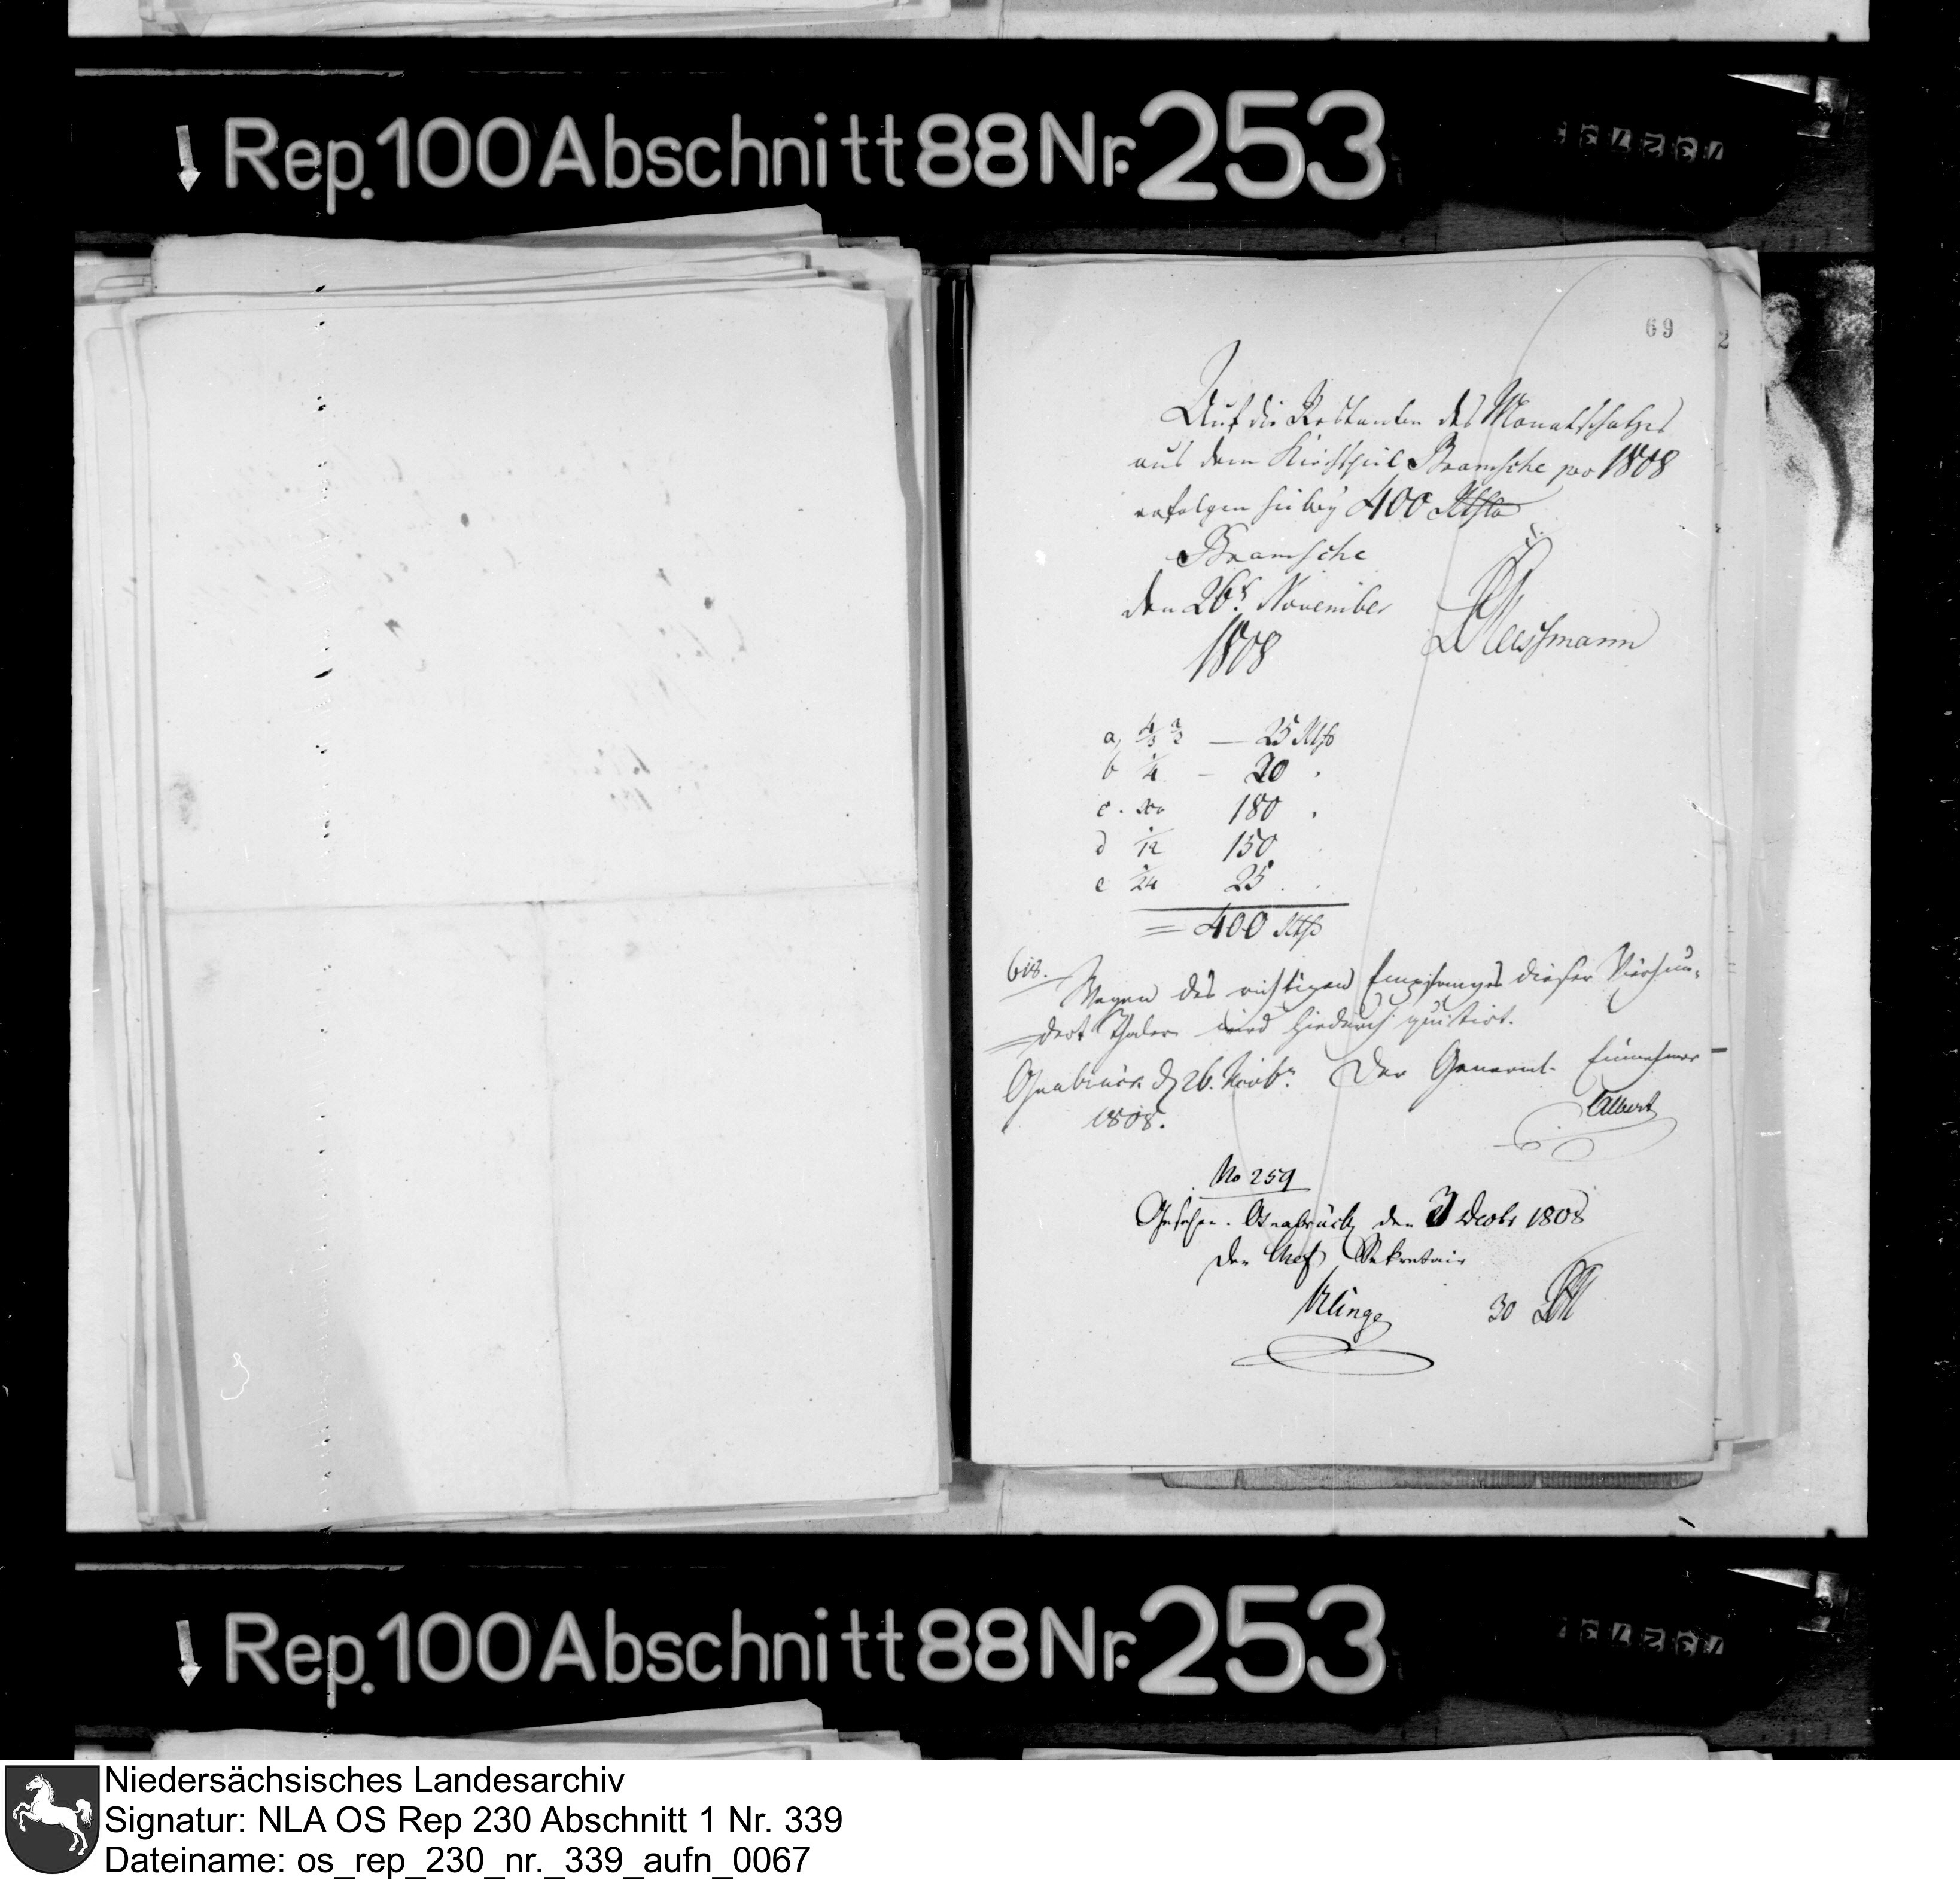 Rep. 100 Abschnitt 88 Nr. 253
69
2
Auf die Restanten des Monatschatzes
aus dem Kirchspiel Bramsche pro 1808
erfolgen hiebey 400 Rthlr
Bramsche
den 26t. November
1808
a, 25 Rthr
b 1/4 – 20
c. 180
d 1/12 150
e 1/24 25
= 400 Rthr
618.
Wegen des richtigen Empfanges dieser Vierhun-
dert Thaler wird hiedurch quitirt.
Osnabrück d 26. Novbr. Der General- Einnehmer
1808. Albert
No 259
Gesehen. Osnabrück den Decbr 1808
Der Chef Sekretair
Klinge 30
Rep. 100 Abschnitt 88 Nr. 253
Niedersächsisches Landesarchiv
Signatur: NLA OS Rep 230 Abschnitt 1 Nr. 339
Dateiname: os_rep_230_nr._339_aufn_0067